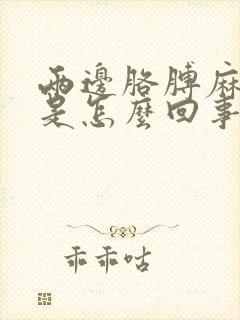 兩邊胳膊麻
是怎麼回事
乖乖咕